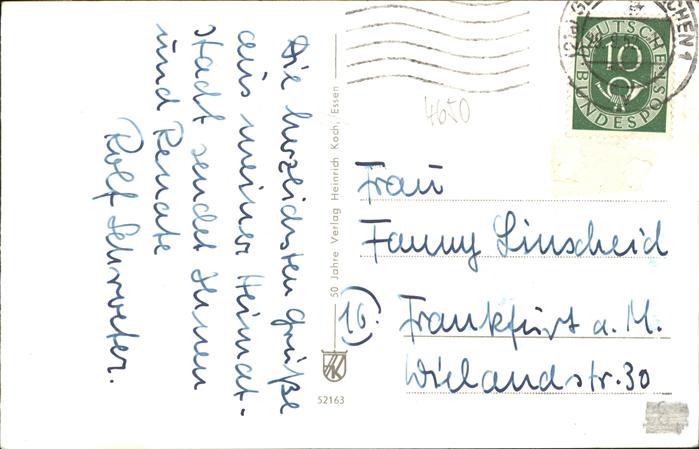 Die herzlichsten Grüße
aus meiner Heimat-
stadt sendet Ihnen
und Renate
Rolf Schroeter.
50 Jahre Verlag Heinrich Koch, Essen
52163
4650
DEUTSCHE
10
BUNDESPOST
Frau
Fanny Linscheid
(16)
Frankfurt a. M.
Wielandstr. 30